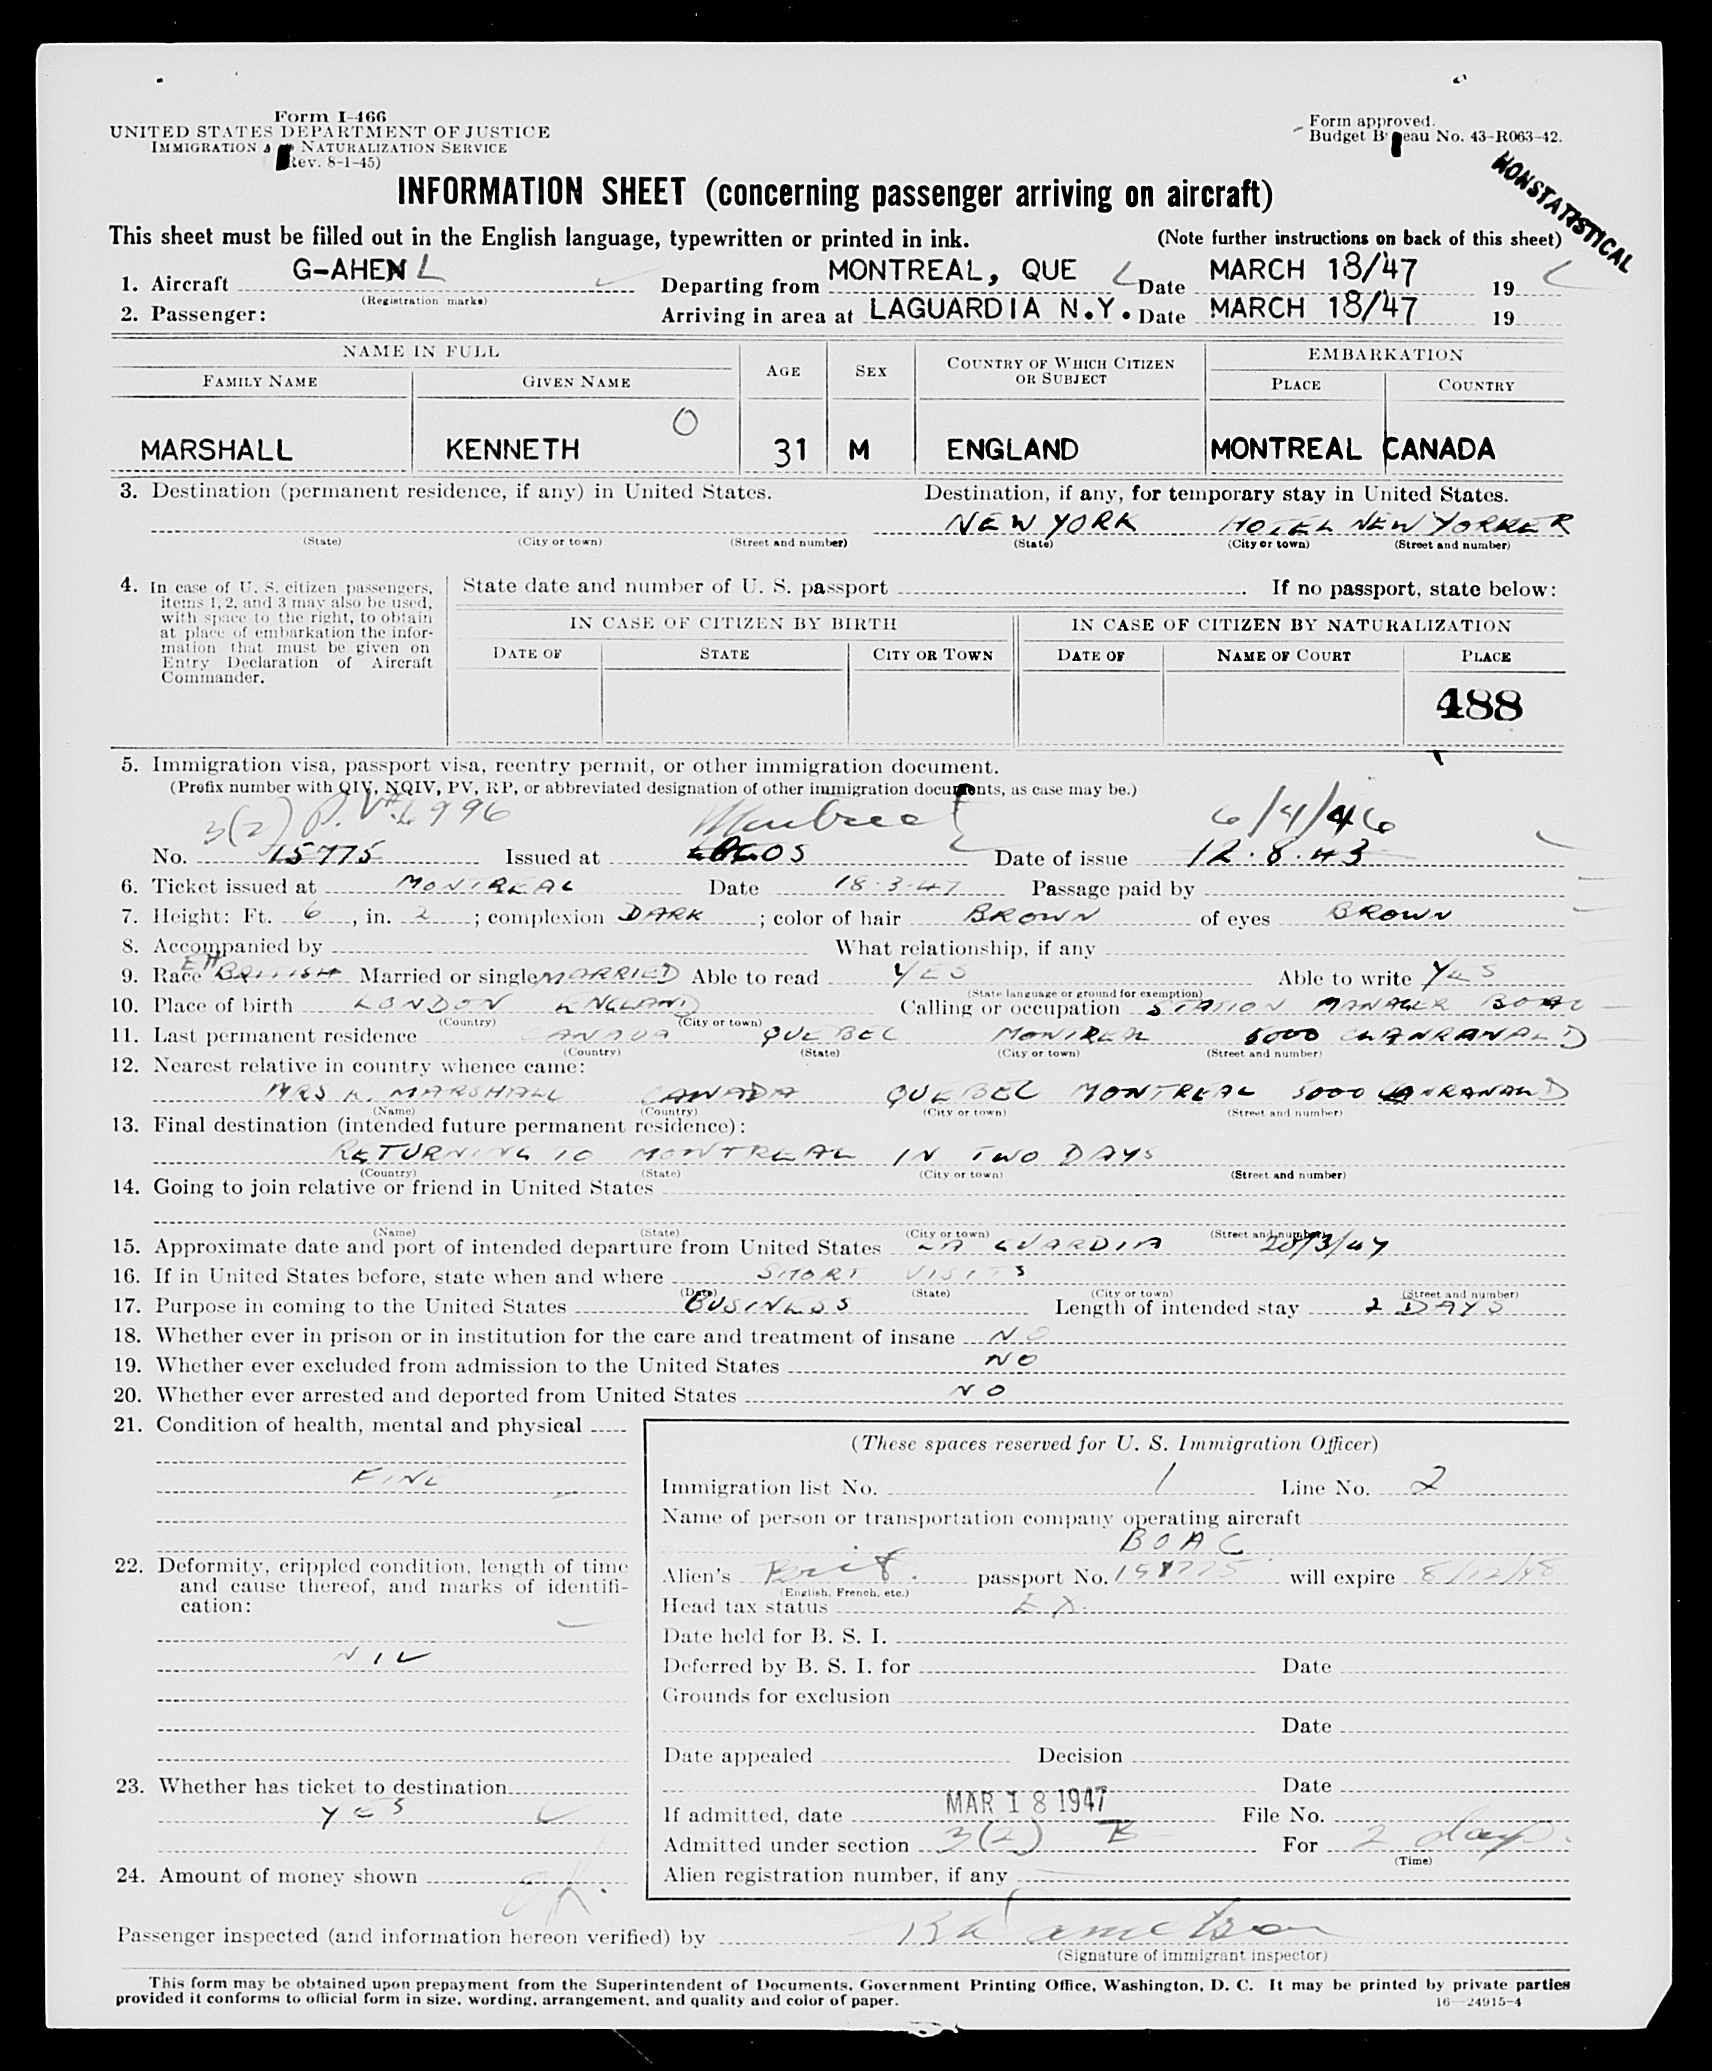 Form I-466
UNITED STATES DEPARTMENT OF JUSTICE
IMMIGRATION NATURALIZATION SERVICE
Rev. 8-1-45)
Form approved.
Budget Bureau No. 43-R063-42.
NONSTATISTICAL
INFORMATION SHEET (concerning passenger arriving on aircraft)
This sheet must be filled out in the English language, typewritten or printed in ink. (Note further instructions on back of this sheet)
1. Aircraft G-AHEN L Departing from MONTREAL, QUE Date MARCH 18/47 19
(Registration marks)
2. Passenger: Arriving in area at LAGUARDIA N.Y. Date MARCH 18/47 19
NAME IN FULL AGE SEX COUNTRY OF WHICH CITIZEN OR SUBJECT EMBARKATION
FAMILY NAME GIVEN NAME PLACE COUNTRY
O
MARSHALL KENNETH 31 M ENGLAND MONTREAL CANADA
3. Destination (permanent residence, if any) in United States. Destination, if any, for temporary stay in United States.
NEW YORK HOTEL NEW YORKER
(State) (City or town) (Street and number) (State) (City or town) (Street and number)
4. In case of U. S. citizen passengers, items 1, 2, and 3 may also be used, with space to the right, to obtain at place of embarkation the information that must be given on Entry Declaration of Aircraft Commander.
State date and number of U. S. passport . If no passport, state below:
IN CASE OF CITIZEN BY BIRTH IN CASE OF CITIZEN BY NATURALIZATION
DATE OF STATE CITY OR TOWN DATE OF NAME OF COURT PLACE
488
5. Immigration visa, passport visa, reentry permit, or other immigration document.
(Prefix number with QIV, NQIV, PV, RP, or abbreviated designation of other immigration documents, as case may be.)
3(2) P.V.# 6996 Montreal 6/4/46
No. 15775 Issued at LAGOS Date of issue 12.8.43
6. Ticket issued at MONTREAL Date 18.3.47 Passage paid by
7. Height: Ft. 6, in. 2; complexion DARK; color of hair BROWN of eyes BROWN
8. Accompanied by What relationship, if any
9. Race BRITISH Married or single MARRIED Able to read YES Able to write YES
(State language or ground for exemption)
10. Place of birth LONDON ENGLAND Calling or occupation STATION MANAGER BOAC
(Country) (City or town)
11. Last permanent residence CANADA QUEBEC MONTREAL 5000 CLANRANALD
(Country) (State) (City or town) (Street and number)
12. Nearest relative in country whence came:
MRS K. MARSHALL CANADA QUEBEC MONTREAL 5000 CLANRANALD
(Name) (Country) (City or town) (Street and number)
13. Final destination (intended future permanent residence):
RETURNING TO MONTREAL IN TWO DAYS
(Country) (State) (City or town) (Street and number)
14. Going to join relative or friend in United States
(Name) (State) (City or town) (Street and number)
15. Approximate date and port of intended departure from United States LA GUARDIA 20/3/47
16. If in United States before, state when and where SHORT VISITS
(Date) (State) (City or town) (Street and number)
17. Purpose in coming to the United States BUSINESS Length of intended stay 2 DAYS
18. Whether ever in prison or in institution for the care and treatment of insane NO
19. Whether ever excluded from admission to the United States NO
20. Whether ever arrested and deported from United States NO
21. Condition of health, mental and physical
FINE
22. Deformity, crippled condition, length of time and cause thereof, and marks of identification:
NIL
23. Whether has ticket to destination
YES
24. Amount of money shown
(These spaces reserved for U. S. Immigration Officer)
Immigration list No. 1 Line No. 2
Name of person or transportation company operating aircraft
BOAC
Alien's Brit. passport No. will expire 8/12/48
(English, French, etc.)
Head tax status EX.
Date held for B. S. I.
Deferred by B. S. I. for Date
Grounds for exclusion
Date
Date appealed Decision
Date
If admitted, date MAR 18 1947 File No.
Admitted under section 3(2) B For 2 days
(Time)
Alien registration number, if any
Passenger inspected (and information hereon verified) by
(Signature of immigrant inspector)
This form may be obtained upon prepayment from the Superintendent of Documents, Government Printing Office, Washington, D. C. It may be printed by private parties
provided it conforms to official form in size, wording, arrangement, and quality and color of paper. 16—24915-4